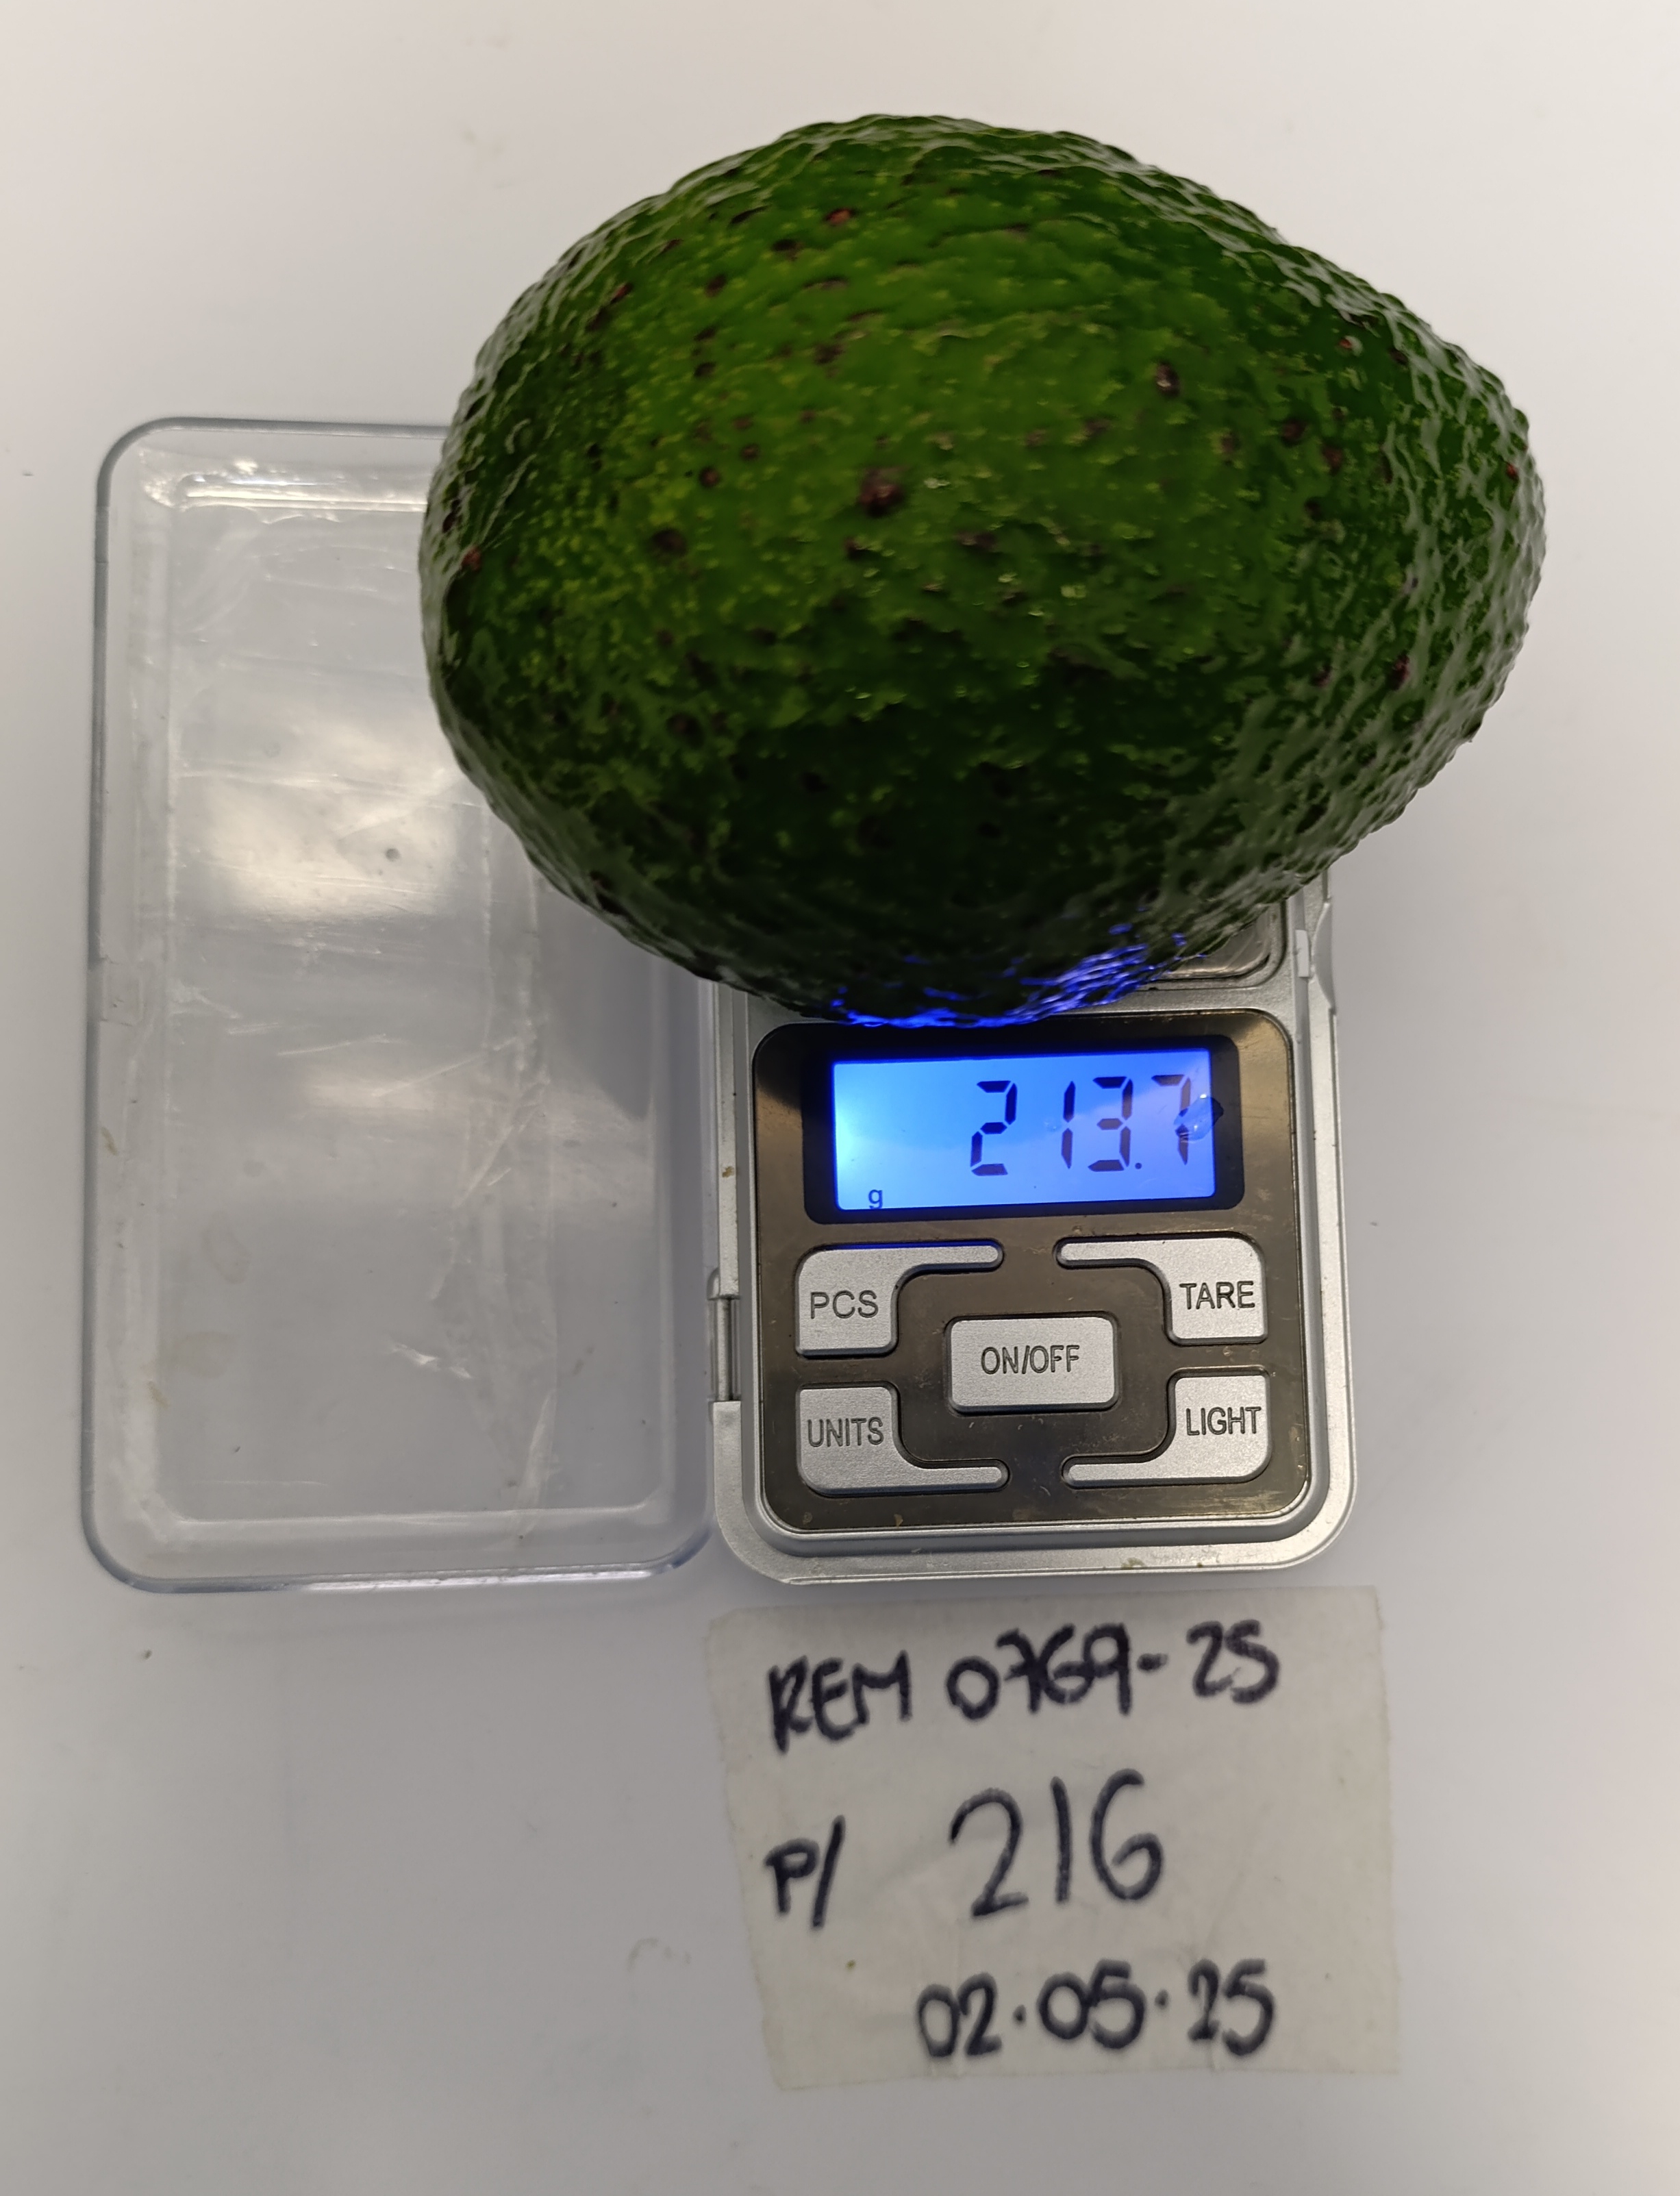 213.7
g
PCS
TARE
ON/OFF
UNITS
LIGHT
REM 0769-25
P/ 216
02.05.25